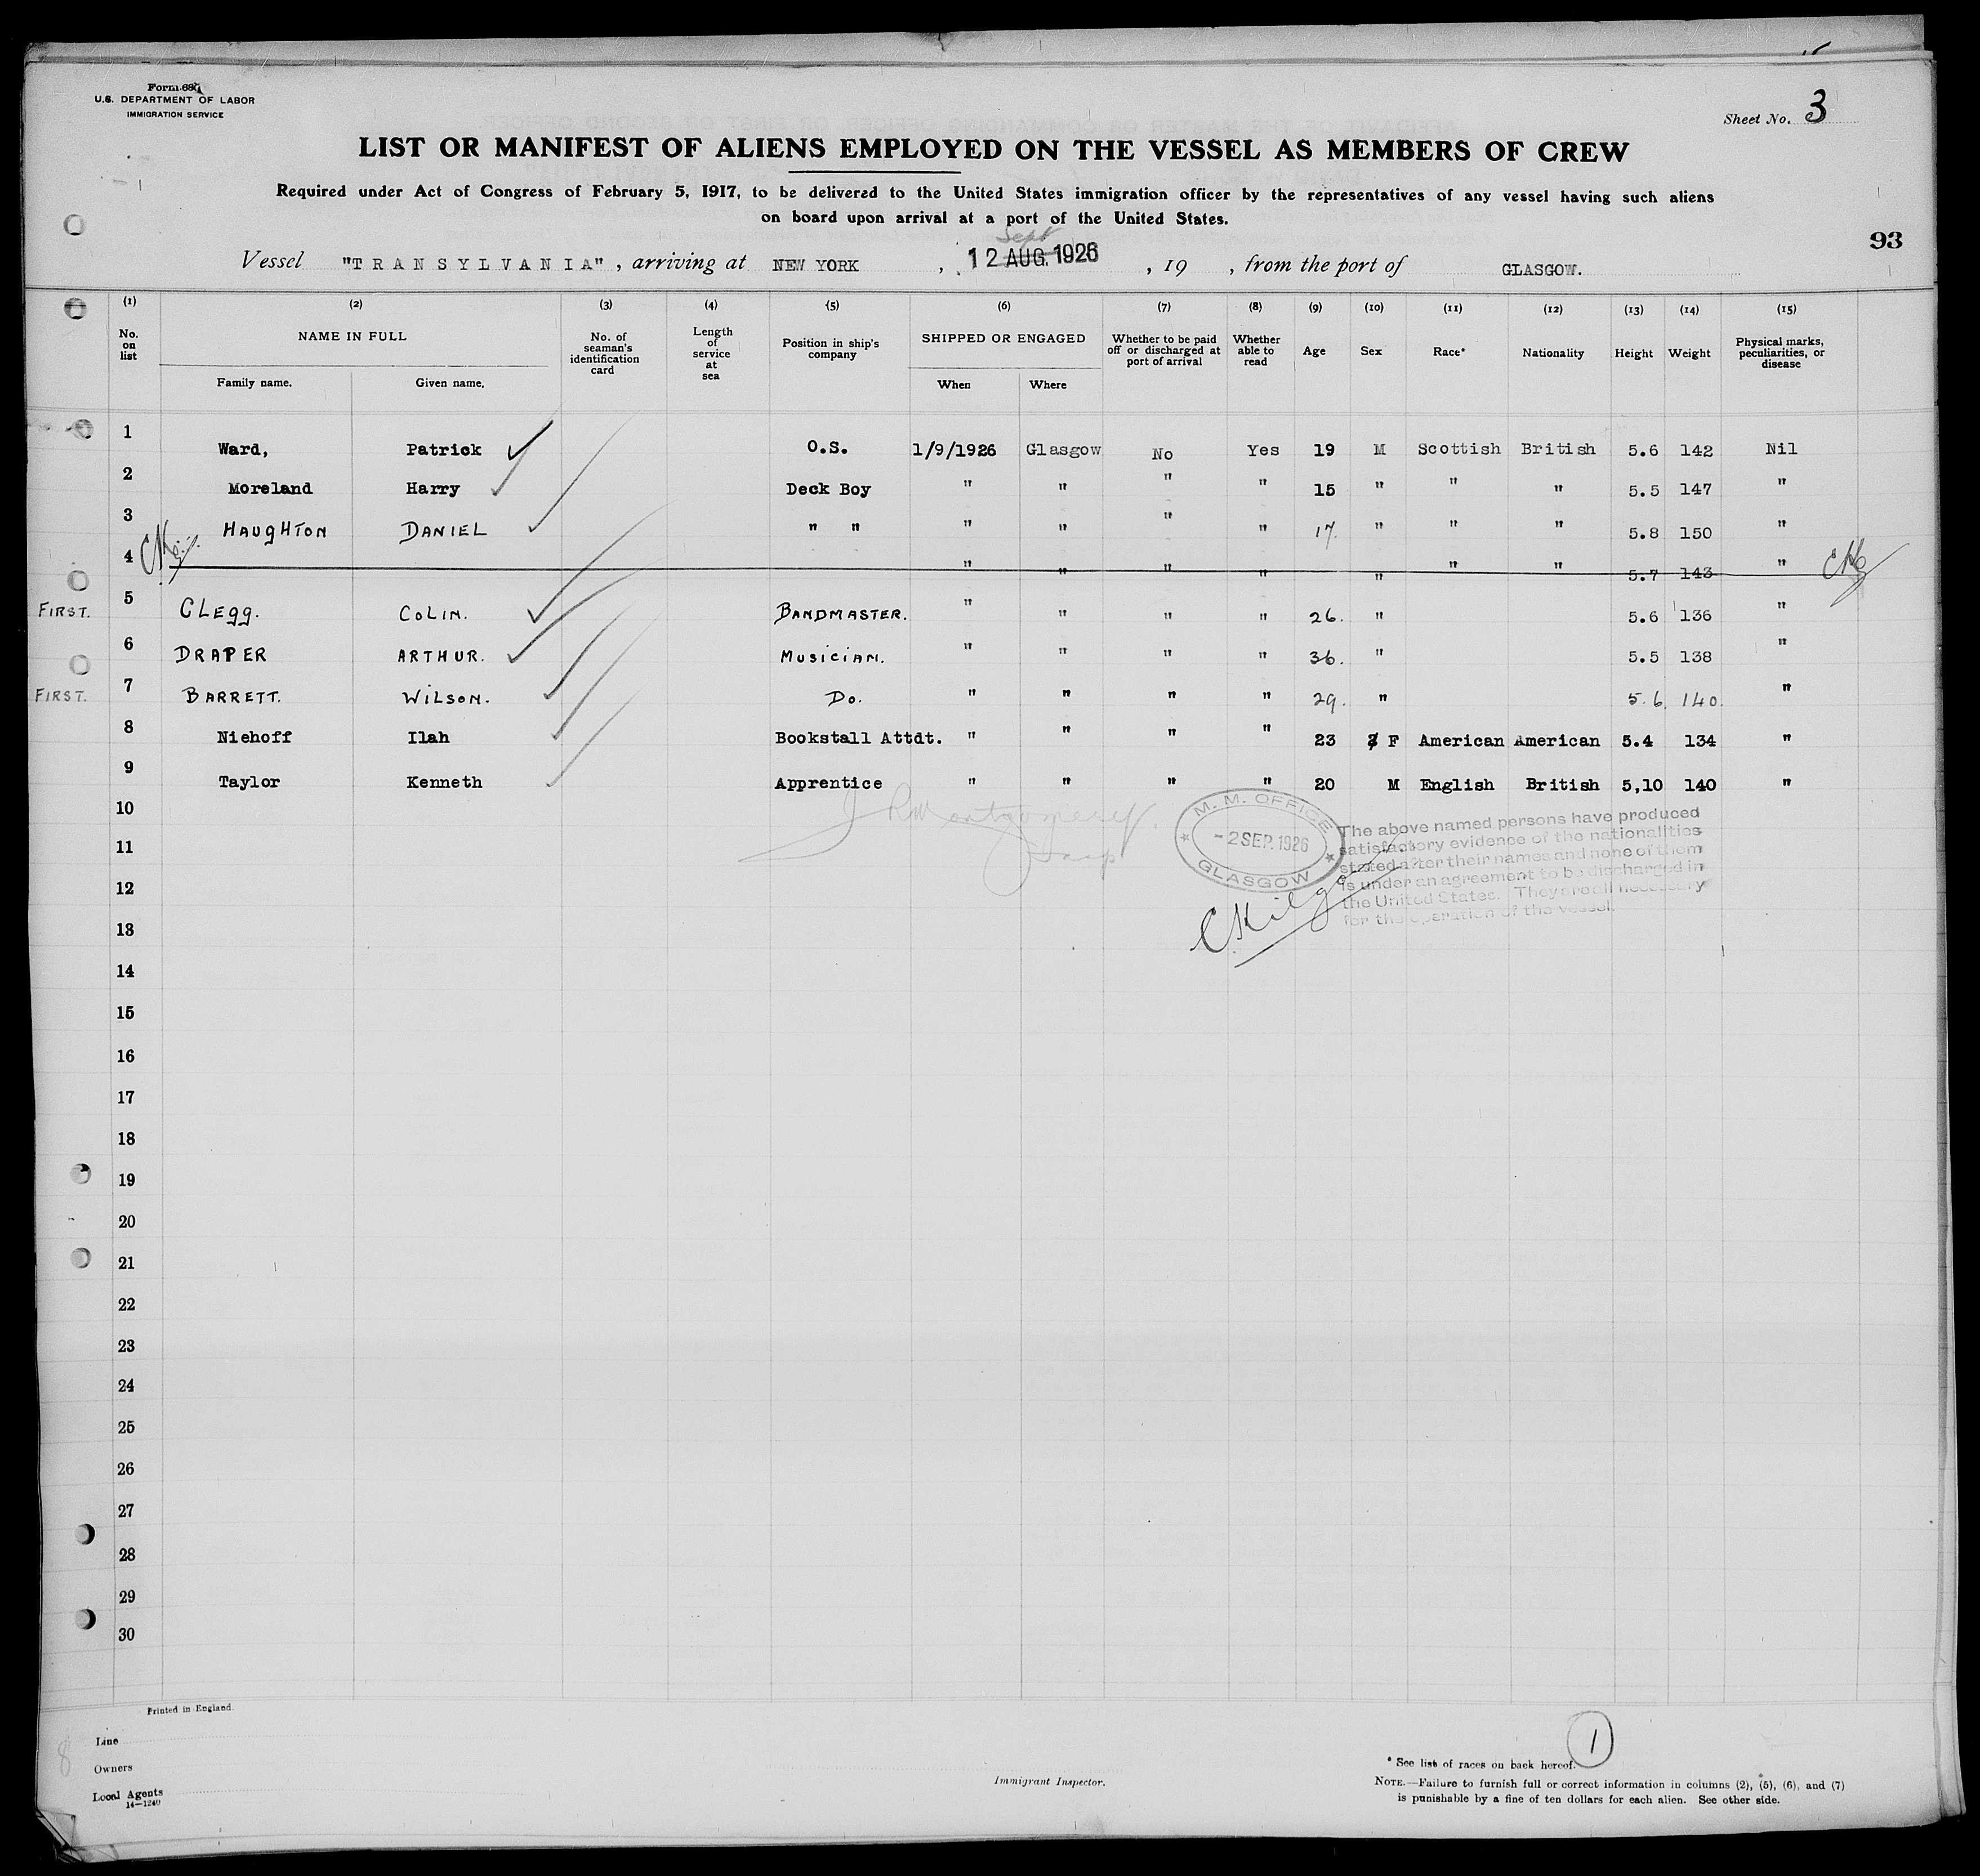 Form 689
U.S. DEPARTMENT OF LABOR
IMMIGRATION SERVICE
Sheet No. 3
LIST OR MANIFEST OF ALIENS EMPLOYED ON THE VESSEL AS MEMBERS OF CREW
Required under Act of Congress of February 5, 1917, to be delivered to the United States immigration officer by the representatives of any vessel having such aliens
on board upon arrival at a port of the United States.
93
Sept
Vessel "TRANSYLVANIA", arriving at NEW YORK, 12 AUG. 1926, 19 , from the port of GLASGOW.
(1) (2) (3) (4) (5) (6) (7) (8) (9) (10) (11) (12) (13) (14) (15)
No. on list NAME IN FULL No. of seaman's identification card Length of service at sea Position in ship's company SHIPPED OR ENGAGED Whether to be paid off or discharged at port of arrival Whether able to read Age Sex Race* Nationality Height Weight Physical marks, peculiarities, or disease
Family name. Given name. When Where
1 Ward, Patrick O.S. 1/9/1926 Glasgow No Yes 19 M Scottish British 5.6 142 Nil
2 Moreland Harry Deck Boy " " " " 15 " " " 5.5 147 "
3 HAUGHTON DANIEL " " " " " " 17. " " " 5.8 150 "
4 " " " " " " " 5.7 143 "
FIRST. 5 CLEGG. COLIN. BANDMASTER. " " " " 26. " 5.6 136 "
6 DRAPER ARTHUR. MUSICIAN. " " " " 36. " 5.5 138 "
FIRST. 7 BARRETT. WILSON. Do. " " " " 29. " 5.6. 140. "
8 Niehoff Ilah Bookstall Attdt. " " " " 23 F American American 5.4 134 "
9 Taylor Kenneth Apprentice " " " " 20 M English British 5,10 140 "
10
11
12
13
14
15
16
17
18
19
20
21
22
23
24
25
26
27
28
29
30
M. M. OFFICE
-2 SEP. 1926
GLASGOW
The above named persons have produced
satisfactory evidence of the nationalities
stated after their names and none of them
is under an agreement to be discharged in
the United States. They are all necessary
for the operation of the vessel.
Printed in England.
Line
Owners
Local Agents
14—1240
8
Immigrant Inspector.
1
* See list of races on back hereof.
NOTE.—Failure to furnish full or correct information in columns (2), (5), (6), and (7)
is punishable by a fine of ten dollars for each alien. See other side.